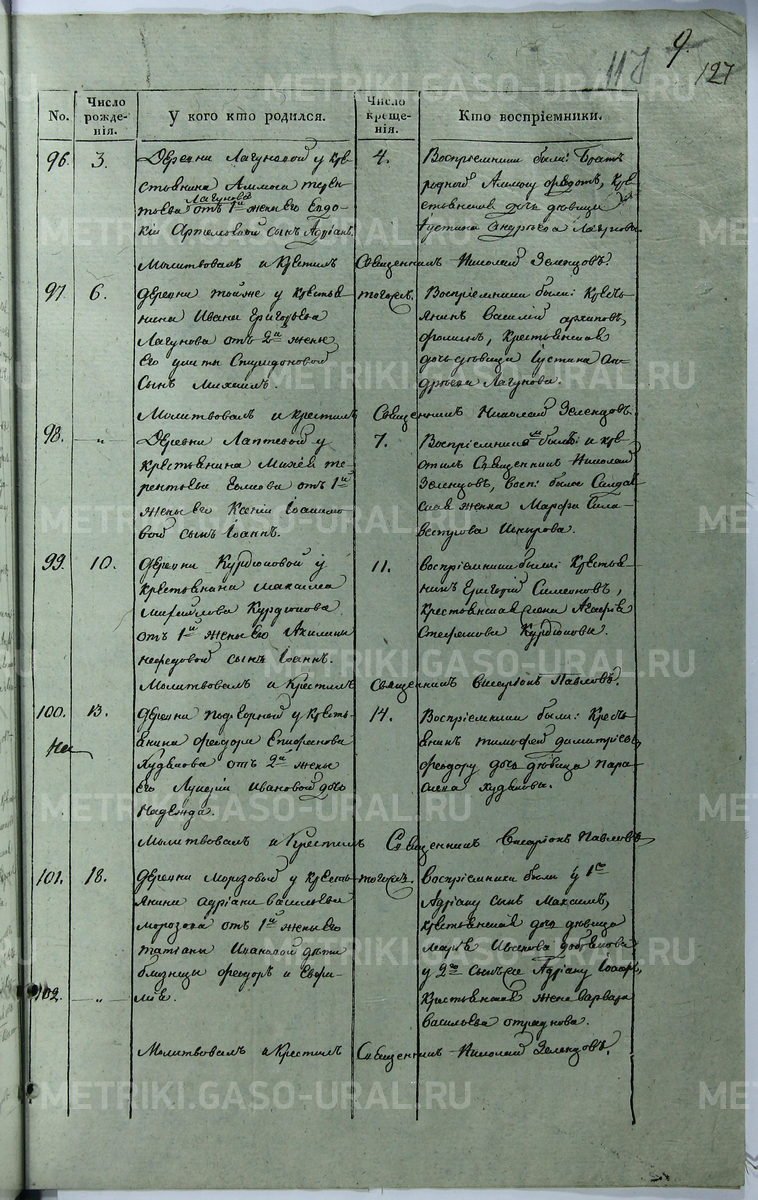 9.
117
127
No.
Число рожденія.
У кого кто родился.
Число крещенія.
Кто воспріемники.
96.
3.
Деревни Лагуновой у кре
стьянина Аммоса терен
тьева Лагунова отъ 1й жены его Евдо
кіи Артемьевой сынъ Адріанъ.
4.
Воспріемники были: Братъ
родной Аммосу федотъ, кре
стьянская дочь девица
Іустина Андреева Лагунова.
Молитвовалъ и Крестилъ Священникъ Николай Зеленцовъ.
97.
6.
деревни тойже у крестья
нина Ивана Григорьева
Лагунова отъ 2й жены
его улиты Спиридоновой
Сынъ Михаилъ.
тогожъ.
Воспріемники были: Кресть
янинъ Василій архиповъ
фоминъ, Крестьянская
дочь девица Іустина Ан
дреева Лагунова.
Молитвовалъ и крестилъ Священникъ Николай Зеленцовъ.
98.
"
Деревни Лаптевой у
крестьянина Михея те
рентьева отъ 1й
жены его Ксеніи Іоакимо
вой сынъ Іоаннъ.
7.
Воспріемникомъ былъ и кре
стилъ Священникъ Николай
Зеленцовъ, восп: была Солдат
ская женка Марфа Сильвестрова
99.
10.
деревни Курдюковой у
крестьянина Максима
Михайлова Курдюкова
отъ 1й жены его Акилины
нефедовой сынъ Іоаннъ.
11.
Воспріемники были: Крестья
нинъ Григорій Симеоновъ,
крестьянская жена Агафія
Стефанова Курдюкова.
Молитвовалъ и Крестилъ Священникъ Висаріонъ Павловъ.
100.
13.
деревни Подгорной у кресть
янина феодора Епифанова
Худякова отъ 2й жены
его Лукеріи Ивановой дочь
Надежда.
14.
Воспріемники были: Кресть
янинъ тимофей димитріевъ,
феодору дочь девица Пара
скева Худякова.
Молитвовалъ и Крестилъ Священникъ Висаріонъ Павловъ
101.
18.
деревни Морозовой у кресть
янина адріана васильева
морозова отъ 1й жены его
татіаны Ивановой дети
близнецы феодоръ и Евфи
мія.
тогожъ.
Воспріемники были у 1го
Адріану сынъ Максимъ,
крестьянская дочь девица
марія
у 2го сынъ ее Адріану
Крестьянская жена варвара
васильева
102.
"
Молитвовалъ и Крестилъ Священникъ Николай Зеленцовъ.
METRIKI.GASO-URAL.RU